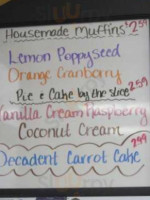 Housemade Muffins $2.59
Lemon Poppyseed
Orange Cranberry
Pie & Cake by the slice 2.59
Vanilla Cream Raspberry
Coconut Cream
Decadent Carrot Cake 2.99